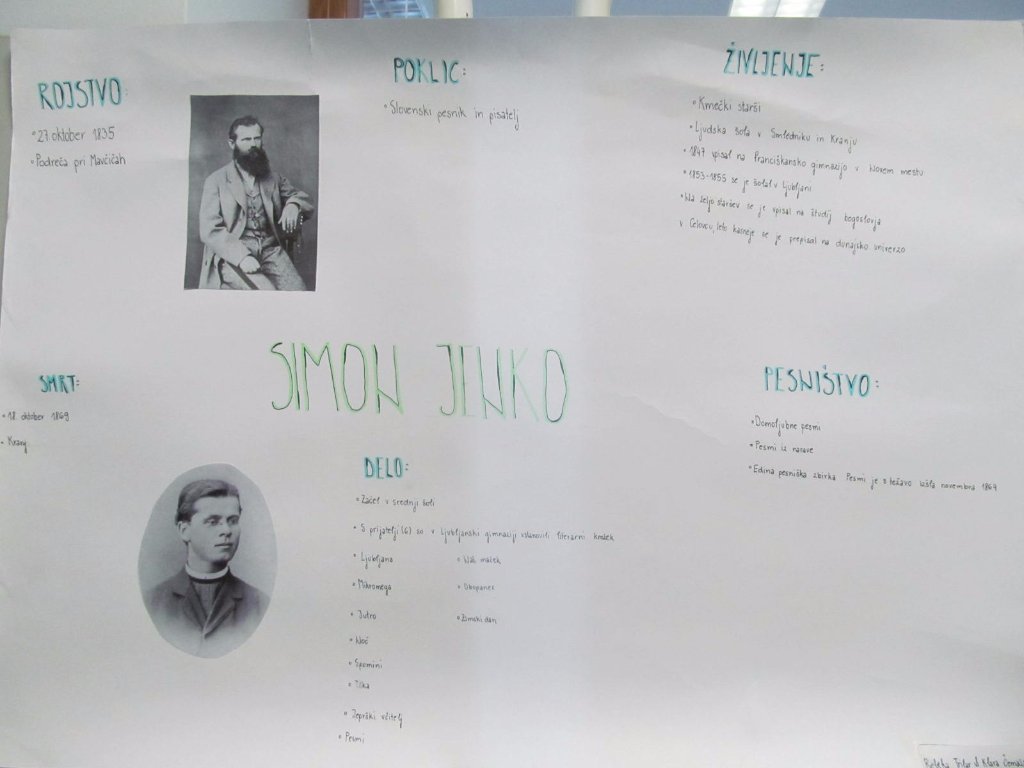 ROJSTVO:
• 27. oktober 1835
• Podreča pri Mavčičah
POKLIC:
• Slovenski pesnik in pisatelj
ŽIVLJENJE:
• Kmečki starši
• Ljudska šola v Smledniku in Kranju
• 1847 vpisal na Frančiškansko gimnazijo v Novem mestu
• 1853-1855 se je šolal v Ljubljani
• Na željo staršev se je vpisal na študij bogoslovja
v Celovcu, leto kasneje se je prepisal na dunajsko univerzo
SIMON JENKO
SMRT:
• 18. oktober 1869
• Kranj
DELO:
• Začel v srednji šoli
• S prijatelji (6) so v Ljubljanski gimnaziji ustanovili literarni krožek
• Ljubljana
• Mikromega
• Jutro
• Noč
• Spomini
• Tilka
• Jeprški učitelj
• Pesmi
• Naš maček
• Obopanec
• Zimski dan
PESNIŠTVO:
• Domoljubne pesmi
• Pesmi iz narave
• Edina pesniška zbirka Pesmi je s težavo izšla novembra 1864
Klara